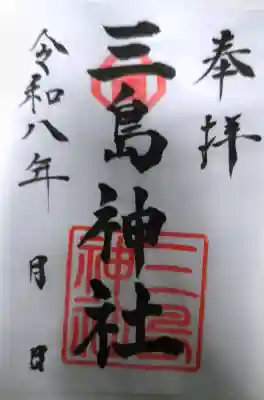 奉拝
三島神社
三島神社
令和八年 月 日